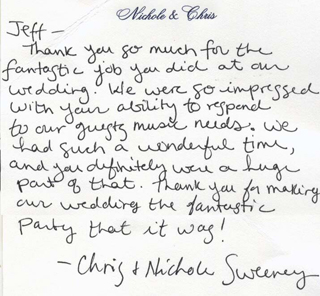 Nichole & Chris
Jeff —
Thank you so much for the
fantastic job you did at our
wedding. We were so impressed
with your ability to respond
to our guests music needs. We
had such a wonderful time,
and you definitely were a huge
part of that. Thank you for making
our wedding the fantastic
party that it was!
— Chris & Nichole Sweeney